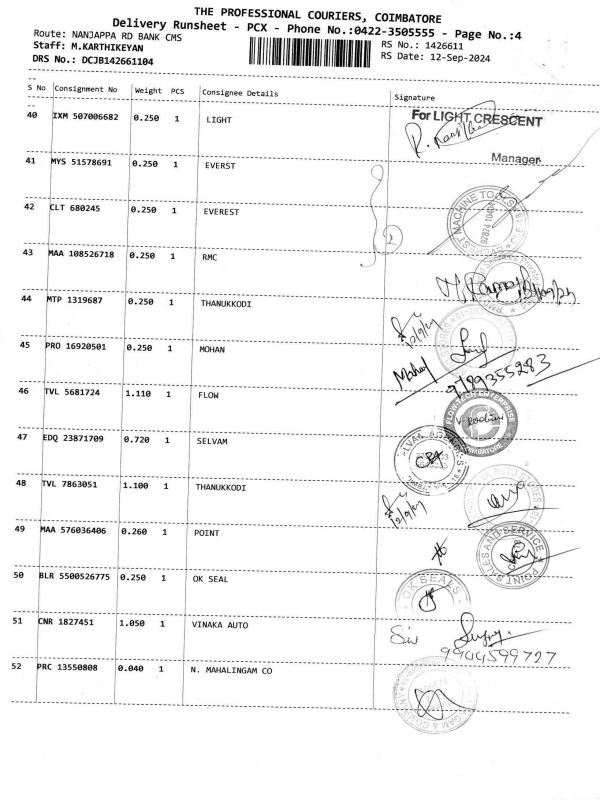 THE PROFESSIONAL COURIERS, COIMBATORE
Delivery Runsheet - PCX - Phone No.:0422-3505555 - Page No.:4
Route: NANJAPPA RD BANK CMS
RS No.: 1426611
Staff: M.KARTHIKEYAN
RS Date: 12-Sep-2024
DRS No.: DCJB142661104
S No Consignment No Weight PCS Consignee Details Signature
40 IXM 507006682 0.250 1 LIGHT
For LIGHT CRESCENT
Manager
41 MYS 51578691 0.250 1 EVERST
42 CLT 680245 0.250 1 EVEREST
2
43 MAA 108526718 0.250 1 RMC
44 MTP 1319687 0.250 1 THANUKKODI
12/9/24
45 PRO 16920501 0.250 1 MOHAN
Mohan
9789355283
46 TVL 5681724 1.110 1 FLOW
47 EDQ 23871709 0.720 1 SELVAM
48 TVL 7863051 1.100 1 THANUKKODI
12/9/24
49 MAA 576036406 0.260 1 POINT
POINT SALES AND SERVICE
50 BLR 5500526775 0.250 1 OK SEAL
OK SEALS
51 CNR 1827451 1.050 1 VINAKA AUTO
9944599727
52 PRC 13550808 0.040 1 N. MAHALINGAM CO